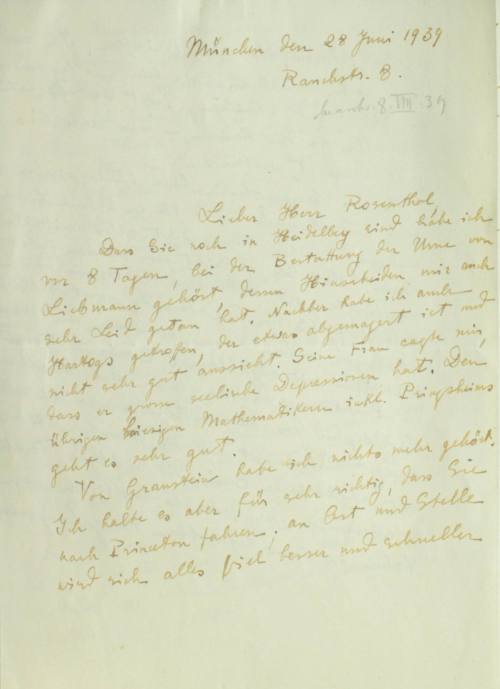 München den 28 Juni 1939
Rauchstr. 8.
8. VIII. 39
Lieber Herr Rosenthal,
Dass Sie noch in Heidelbg sind habe ich
vor 8 Tagen, bei der Bestattung der Urne von
Liebmann gehört, dessen Hinscheiden mir auch
sehr Leid getan hat. Nachher habe ich auch
Hartogs getroffen, der etwas abgemagert ist und
nicht sehr gut aussieht. Seine Frau sagte mir,
dass er grosse seelische Depressionen hat. Den
übrigen hiesigen Mathematikern inkl. Pringsheims
geht es sehr gut.
Von Graustein habe ich nichts mehr gehört.
Ich halte es aber für sehr richtig, dass Sie
nach Princeton fahren; an Ort und Stelle
wird sich alles viel besser und schneller